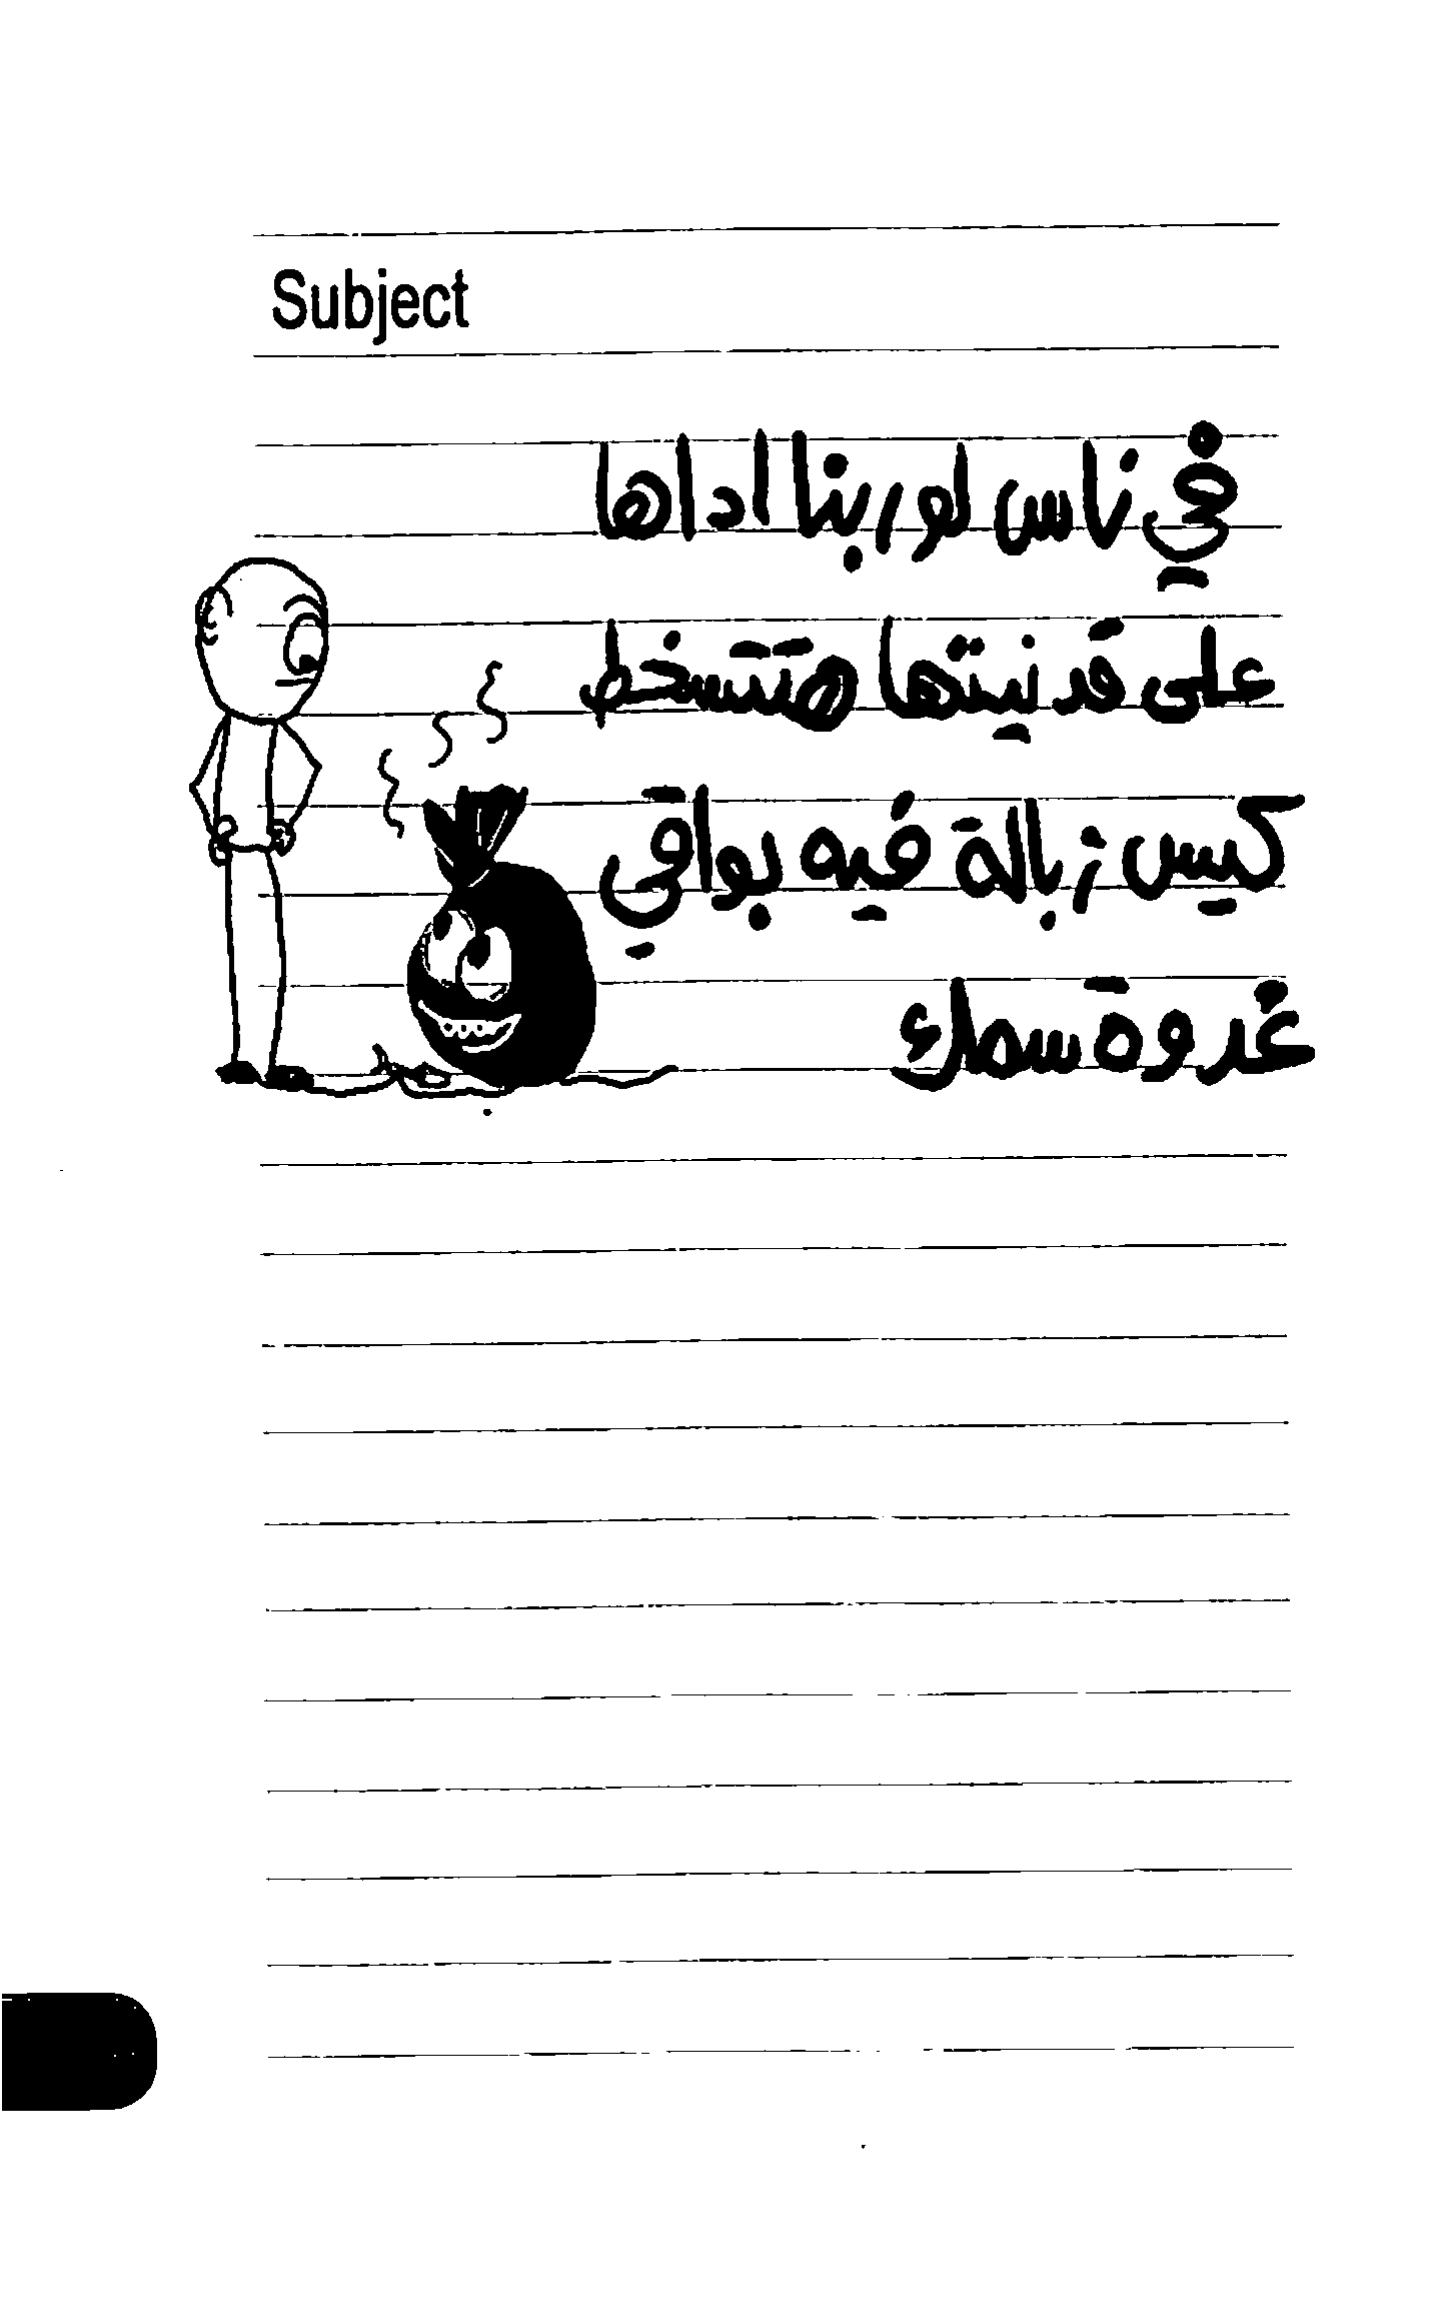 Subject
في ناس لو ربنا اداها
على قد نيتها هتتسخط
كيس زبالة فيه بواقي
غدوة سمك